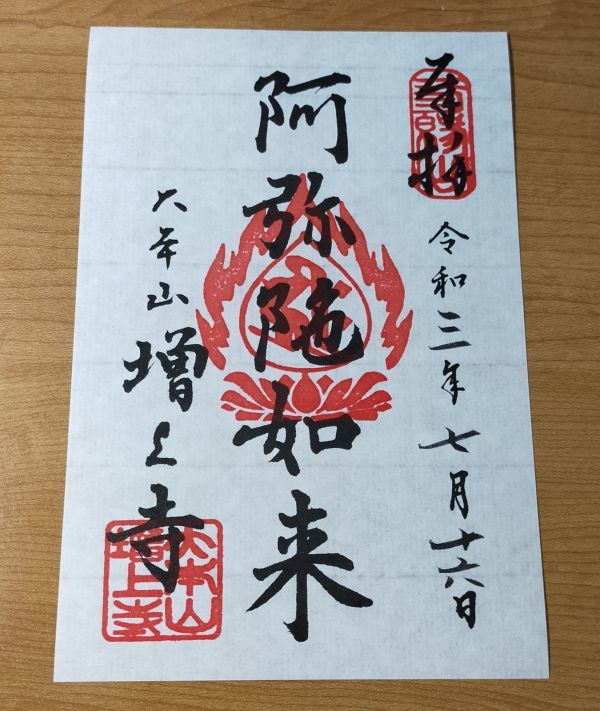 奉拝
令和三年七月十六日
阿弥陀如来
大本山増上寺
大本山
増上寺